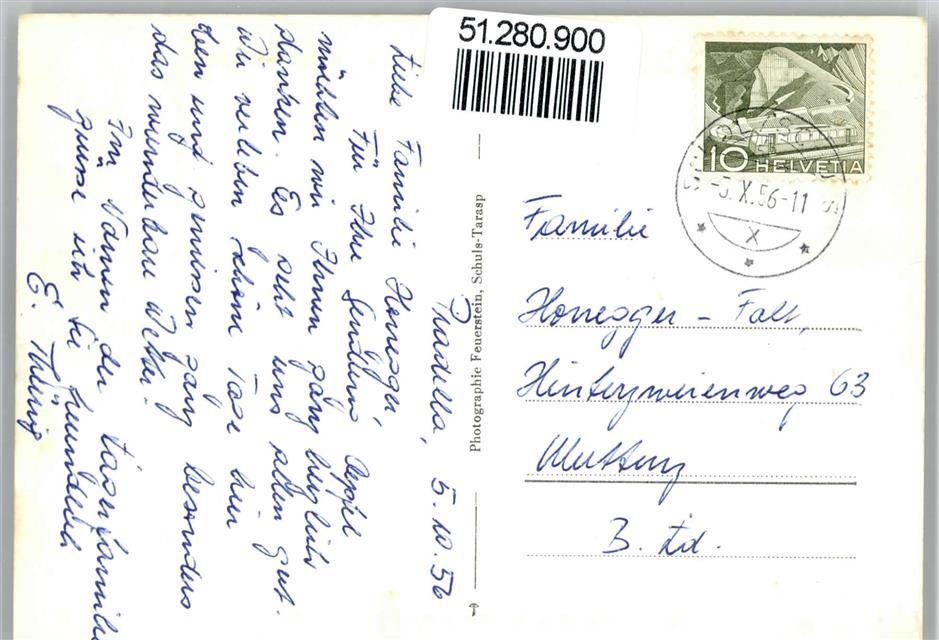 51.280.900
10 HELVETIA
-5.X.56-11
X
Pradella, 5.10.56
Liebe Familie Honegger,
Für Ihre Sendung Äpfel
möchten wir Ihnen ganz herzlich
danken. Es geht uns allen gut.
Wir verleben schöne Tage hier
oben und geniessen ganz besonders
das wunderbare Wetter.
Im Namen der Lagerfamilie
grüsse ich Sie freundlich
E.
Photographie Feuerstein, Schuls-Tarasp
Familie
Honegger - Falt,
Hinterzweienweg 63
Muttenz
B. Ld.